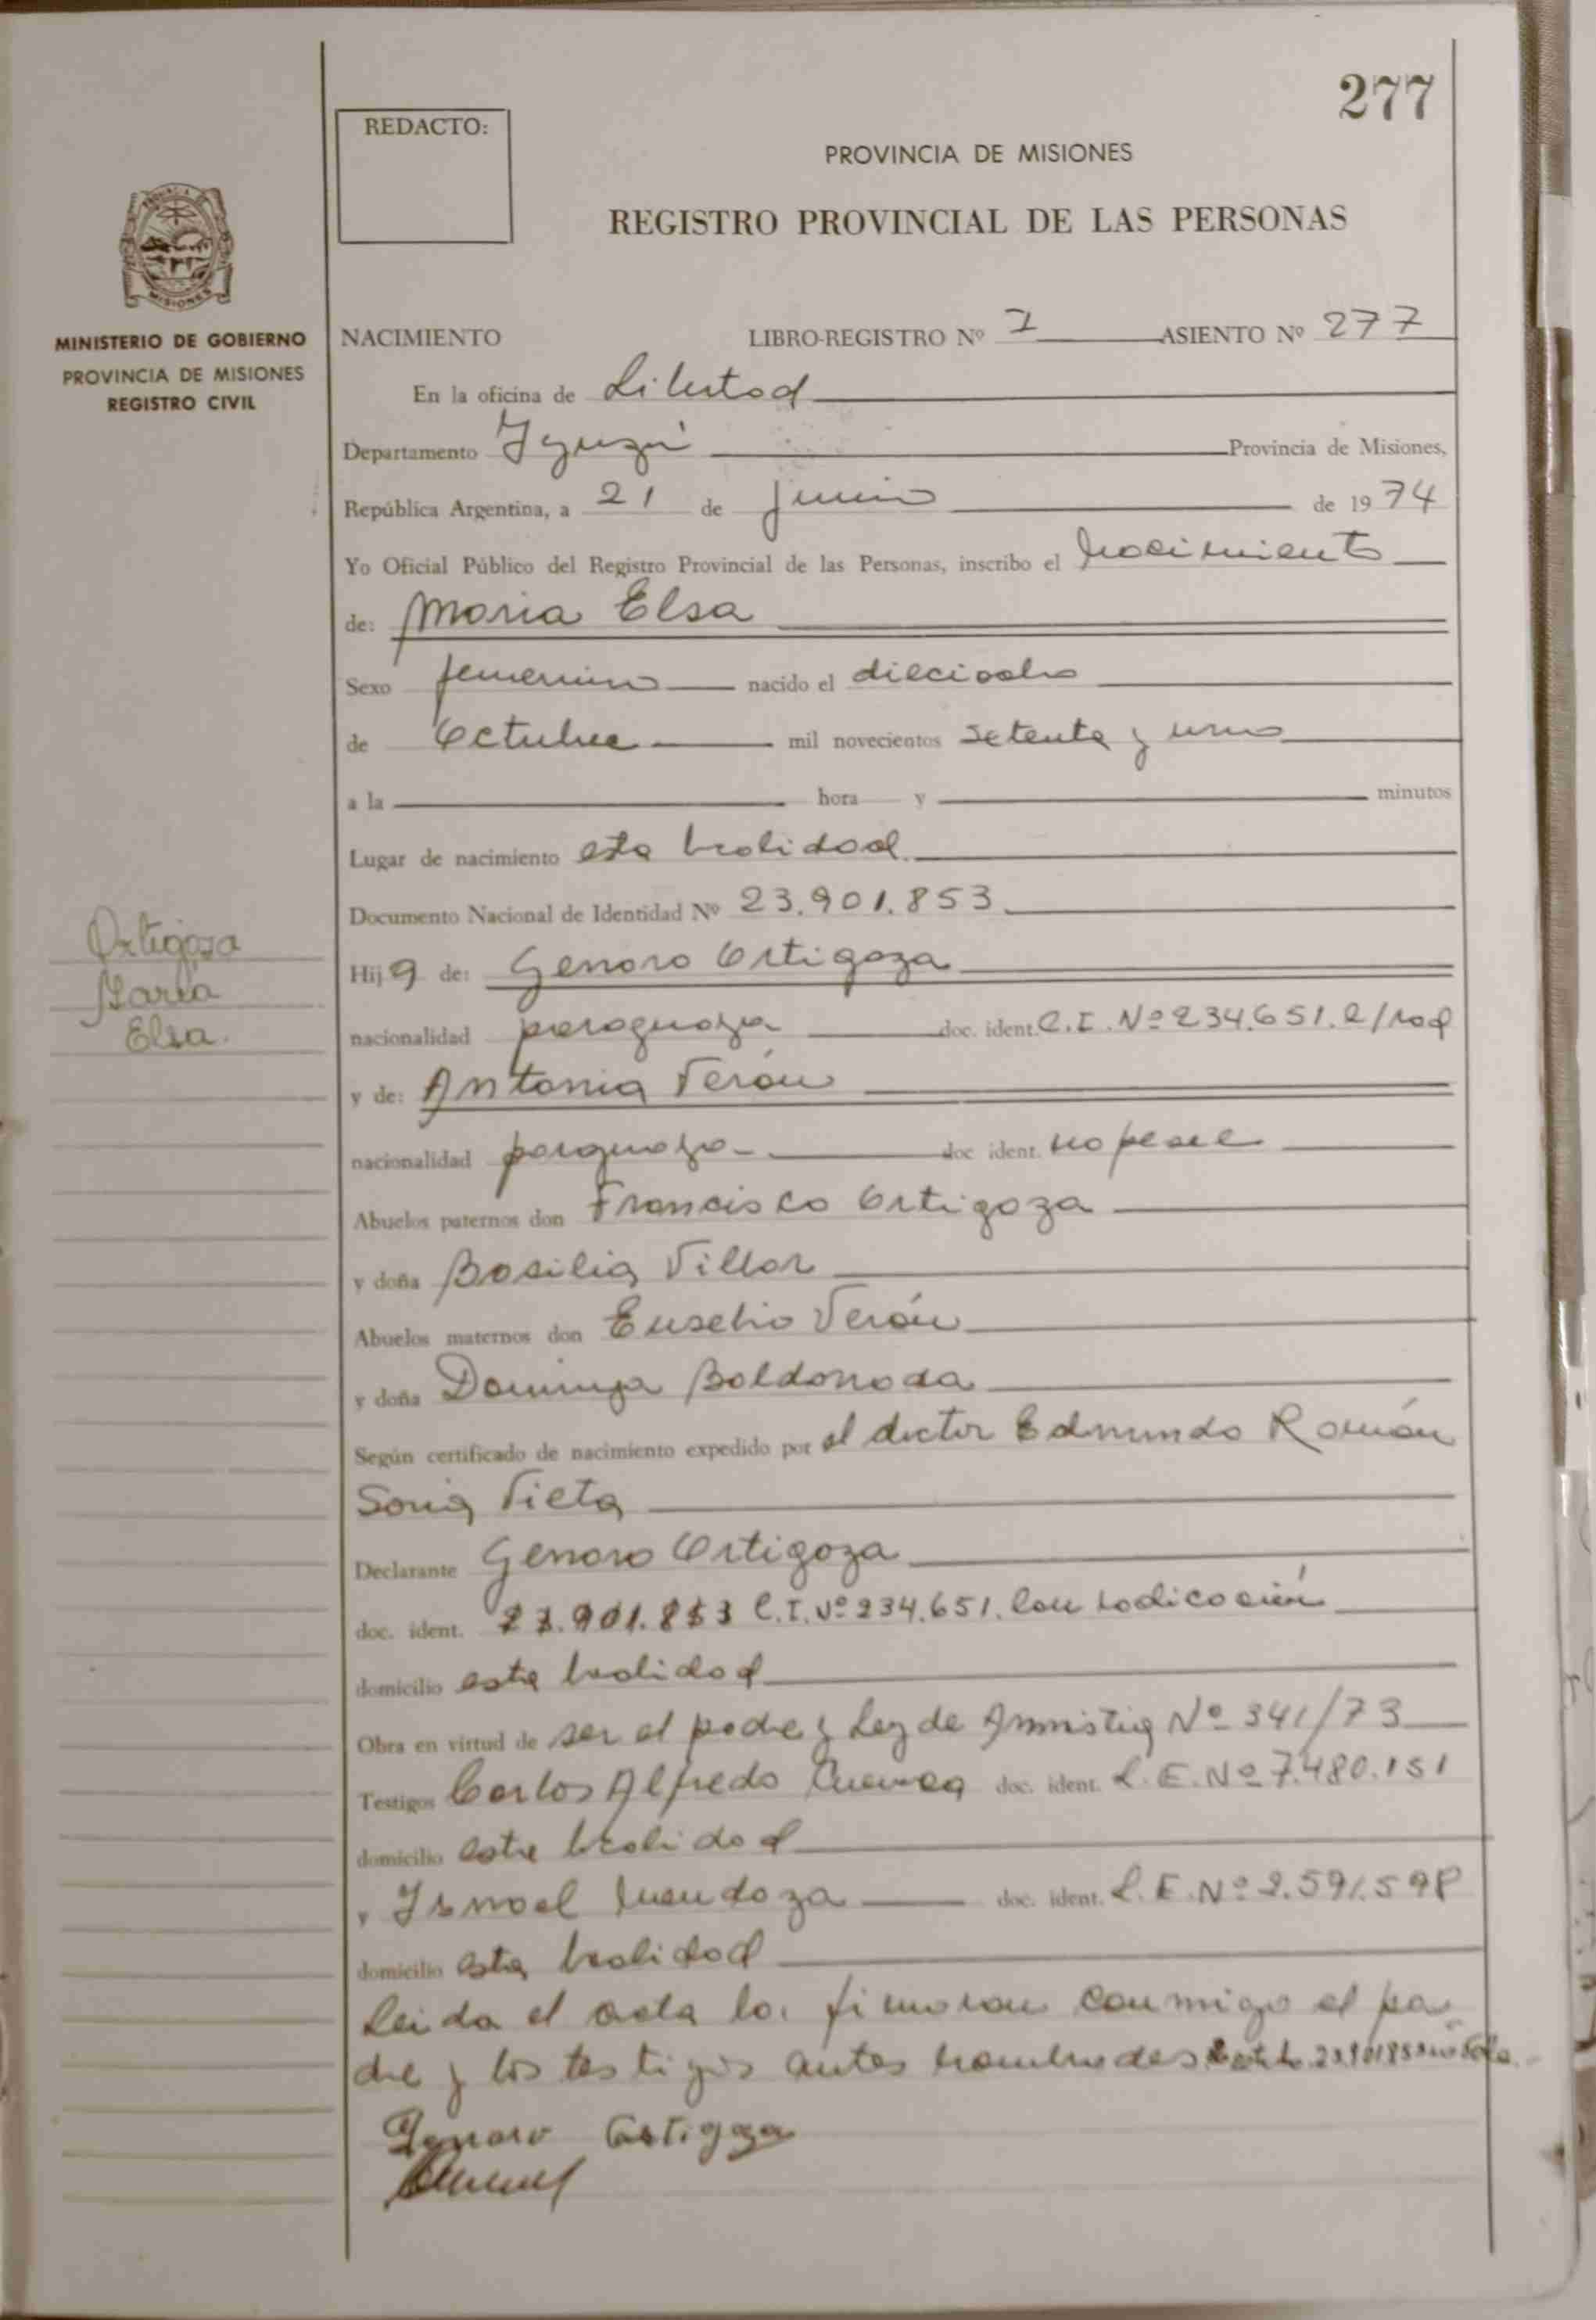 277
REDACTO:
PROVINCIA DE MISIONES
REGISTRO PROVINCIAL DE LAS PERSONAS
MISIONES
MINISTERIO DE GOBIERNO
PROVINCIA DE MISIONES
REGISTRO CIVIL
NACIMIENTO LIBRO-REGISTRO Nº 1 ASIENTO Nº 277
En la oficina de Libertad
Departamento Iguazú Provincia de Misiones,
República Argentina, a 21 de junio de 1974
Yo Oficial Público del Registro Provincial de las Personas, inscribo el nacimiento
de: Maria Elsa
Sexo femenino nacido el dieciocho
de Octubre mil novecientos setenta y uno
a la hora y minutos
Lugar de nacimiento esta localidad
Documento Nacional de Identidad Nº 23.901.853
Ortigoza
María
Elsa.
Hija de: Genaro Ortigoza
nacionalidad paraguaya doc. ident. C.I. Nº 234.651. C/rad
y de: Antonia Verón
nacionalidad paraguaya doc ident. no posee
Abuelos paternos don Francisco Ortigoza
y doña Basilia Villar
Abuelos maternos don Eusebio Verón
y doña Dominga Baldonada
Según certificado de nacimiento expedido por el doctor Edmundo Román
Soria Vieta
Declarante Genaro Ortigoza
doc. ident. 23.901.853 C.I. Nº 234.651. Con radicación
domicilio esta localidad
Obra en virtud de ser el padre y Ley de Amnistia Nº 341/73
Testigos Carlos Alfredo doc. ident. L.E. Nº 7.480.151
domicilio esta localidad
y Ismael Mendoza doc. ident. L.E. Nº 2.591.598
domicilio esta localidad
Leida el acta la firmaron conmigo el pa
dre y los testigos antes nombrados 23.901853 no vale.
Genaro Ortigoza